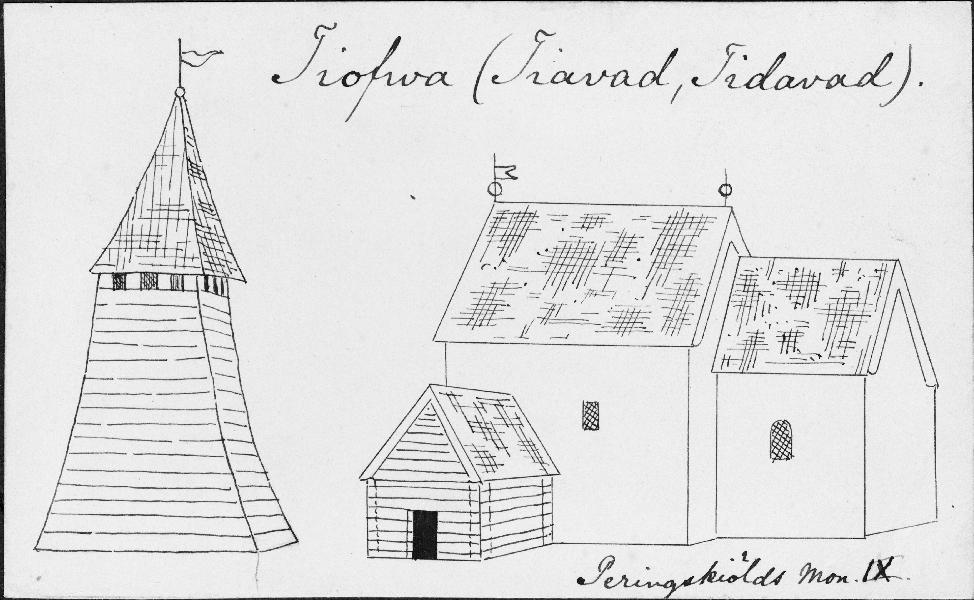 Tiofwa (Tiavad, Tidavad).
Peringskiölds Mon. IX.